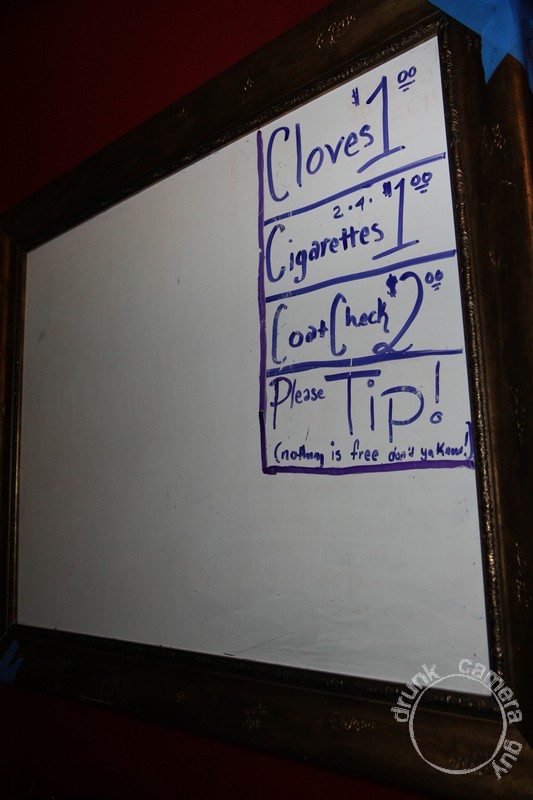 Cloves $1.00
2.4.
Cigarettes $1.00
Coat Check $2.00
Please Tip!
(nothing is free don't ya Know!)
drunk camera guy